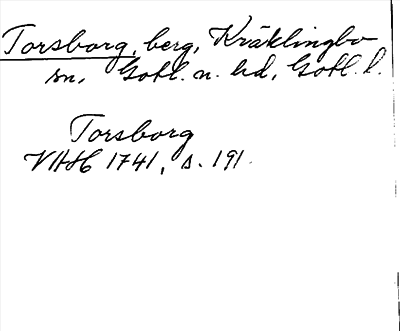 Torsborg, berg, Kräklingbo
sn, Gotl. n. hd, Gotl. l.
Torsborg
VHAH 1741, s. 191.